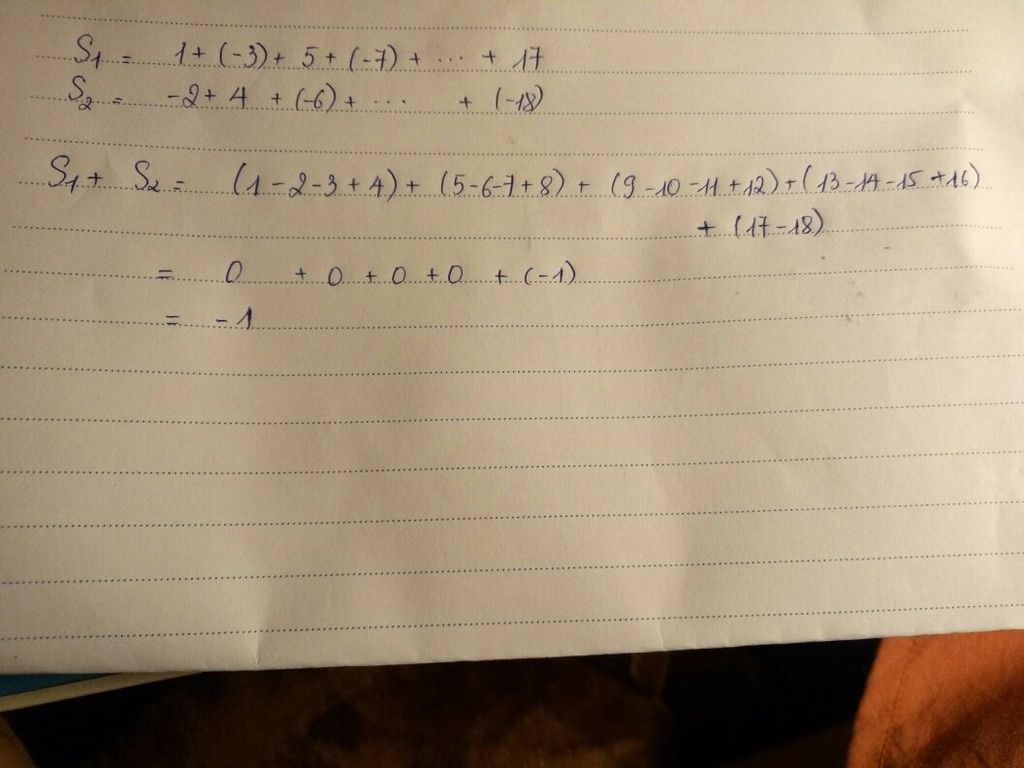 S₁ = 1 + (-3) + 5 + (-7) + ... + 17
S₂ = -2 + 4 + (-6) + ... + (-18)
S₁ + S₂ = (1 - 2 - 3 + 4) + (5 - 6 - 7 + 8) + (9 - 10 - 11 + 12) + (13 - 14 - 15 + 16)
+ (17 - 18)
= 0 + 0 + 0 + 0 + (-1)
= -1